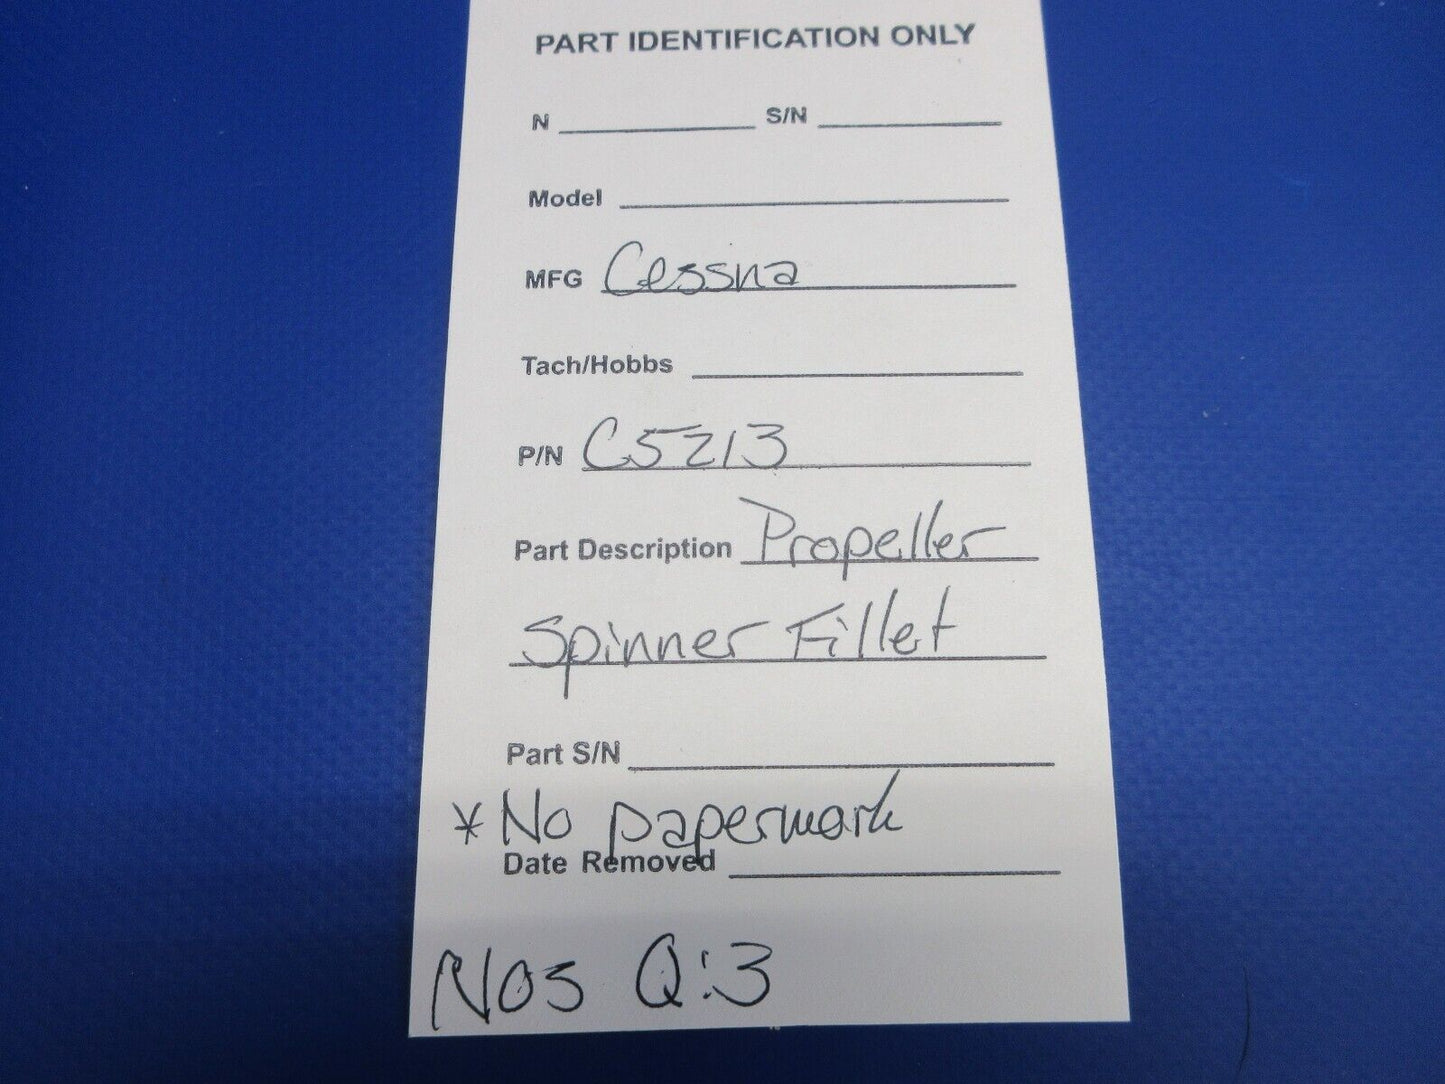 PART IDENTIFICATION ONLY
N S/N
Model
MFG Cessna
Tach/Hobbs
P/N C5213
Part Description Propeller
Spinner Fillet
Part S/N
* No papermark
Date Removed
NOS Q:3